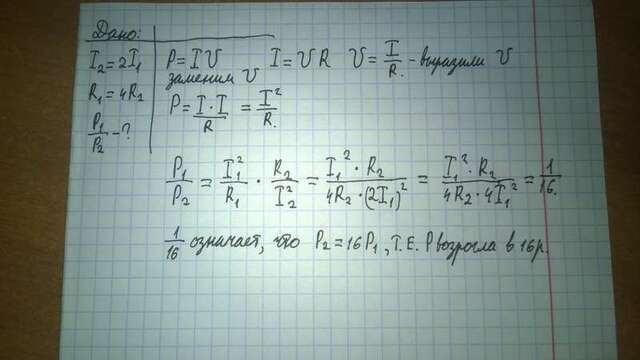 Дано:
I₂=2I₁
R₁=4R₂
P₁/P₂ - ?
P=IU I=UR U=I/R. - выразили U
заменим U
P=I·I/R = I²/R.
P₁/P₂ = I₁²/R₁ · R₂/I₂² = I₁²·R₂/4R₂·(2I₁)² = I₁²·R₂/4R₂·4I₁² = 1/16.
1/16 означает, что P₂=16P₁, Т.Е. P возрогла в 16р.